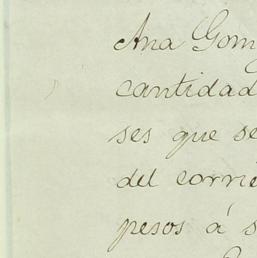 Ana Gom
cantidad
ses que se
del corrie
pesos á s